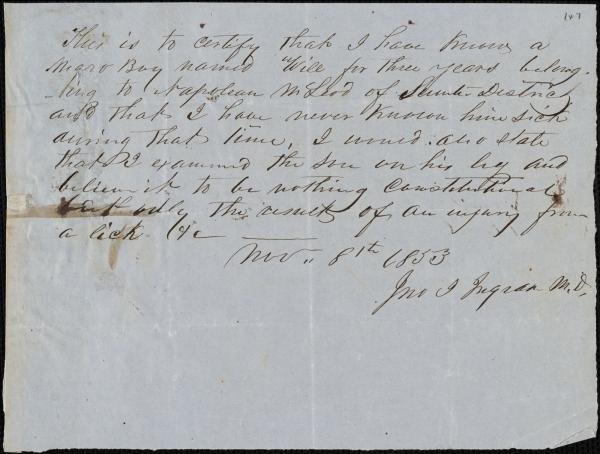 147
This is to certify that I have known a
Negro Boy named "Will for three years belong-
-ing to Napolean McLeod of Sumter District
and that I have never known him sick
during that time, I would also state
that I examined the sore on his leg and
believe it to be nothing constitutional
but only the result of an injury from
a lick &c
Nov. 8th 1853
Jno I Ingram M.D.